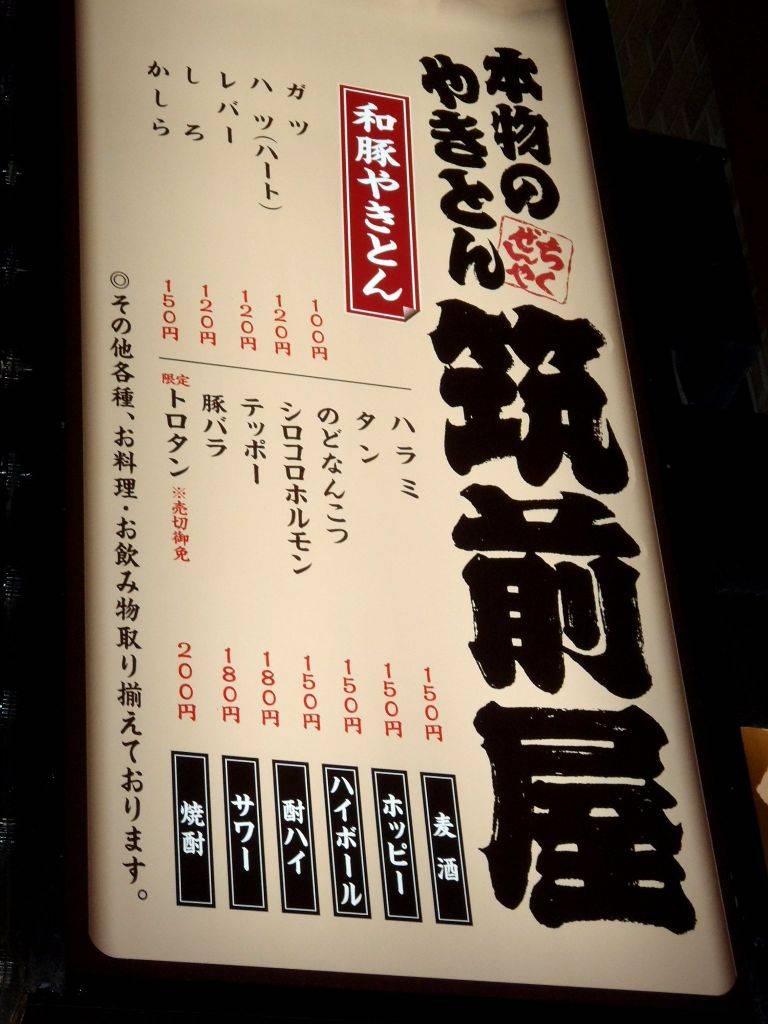 本物の
やきとん
ちくぜんや
筑前屋
和豚やきとん
ガツ 100円
ハツ(ハート) 120円
レバー 120円
しろ 120円
かしら 150円
ハラミ 150円
タン 150円
のどなんこつ 150円
シロコロホルモン 150円
テッポー 180円
豚バラ 180円
限定 トロタン ※売切御免 200円
麦酒
ホッピー
ハイボール
酎ハイ
サワー
焼酎
◎その他各種、お料理・お飲み物取り揃えております。